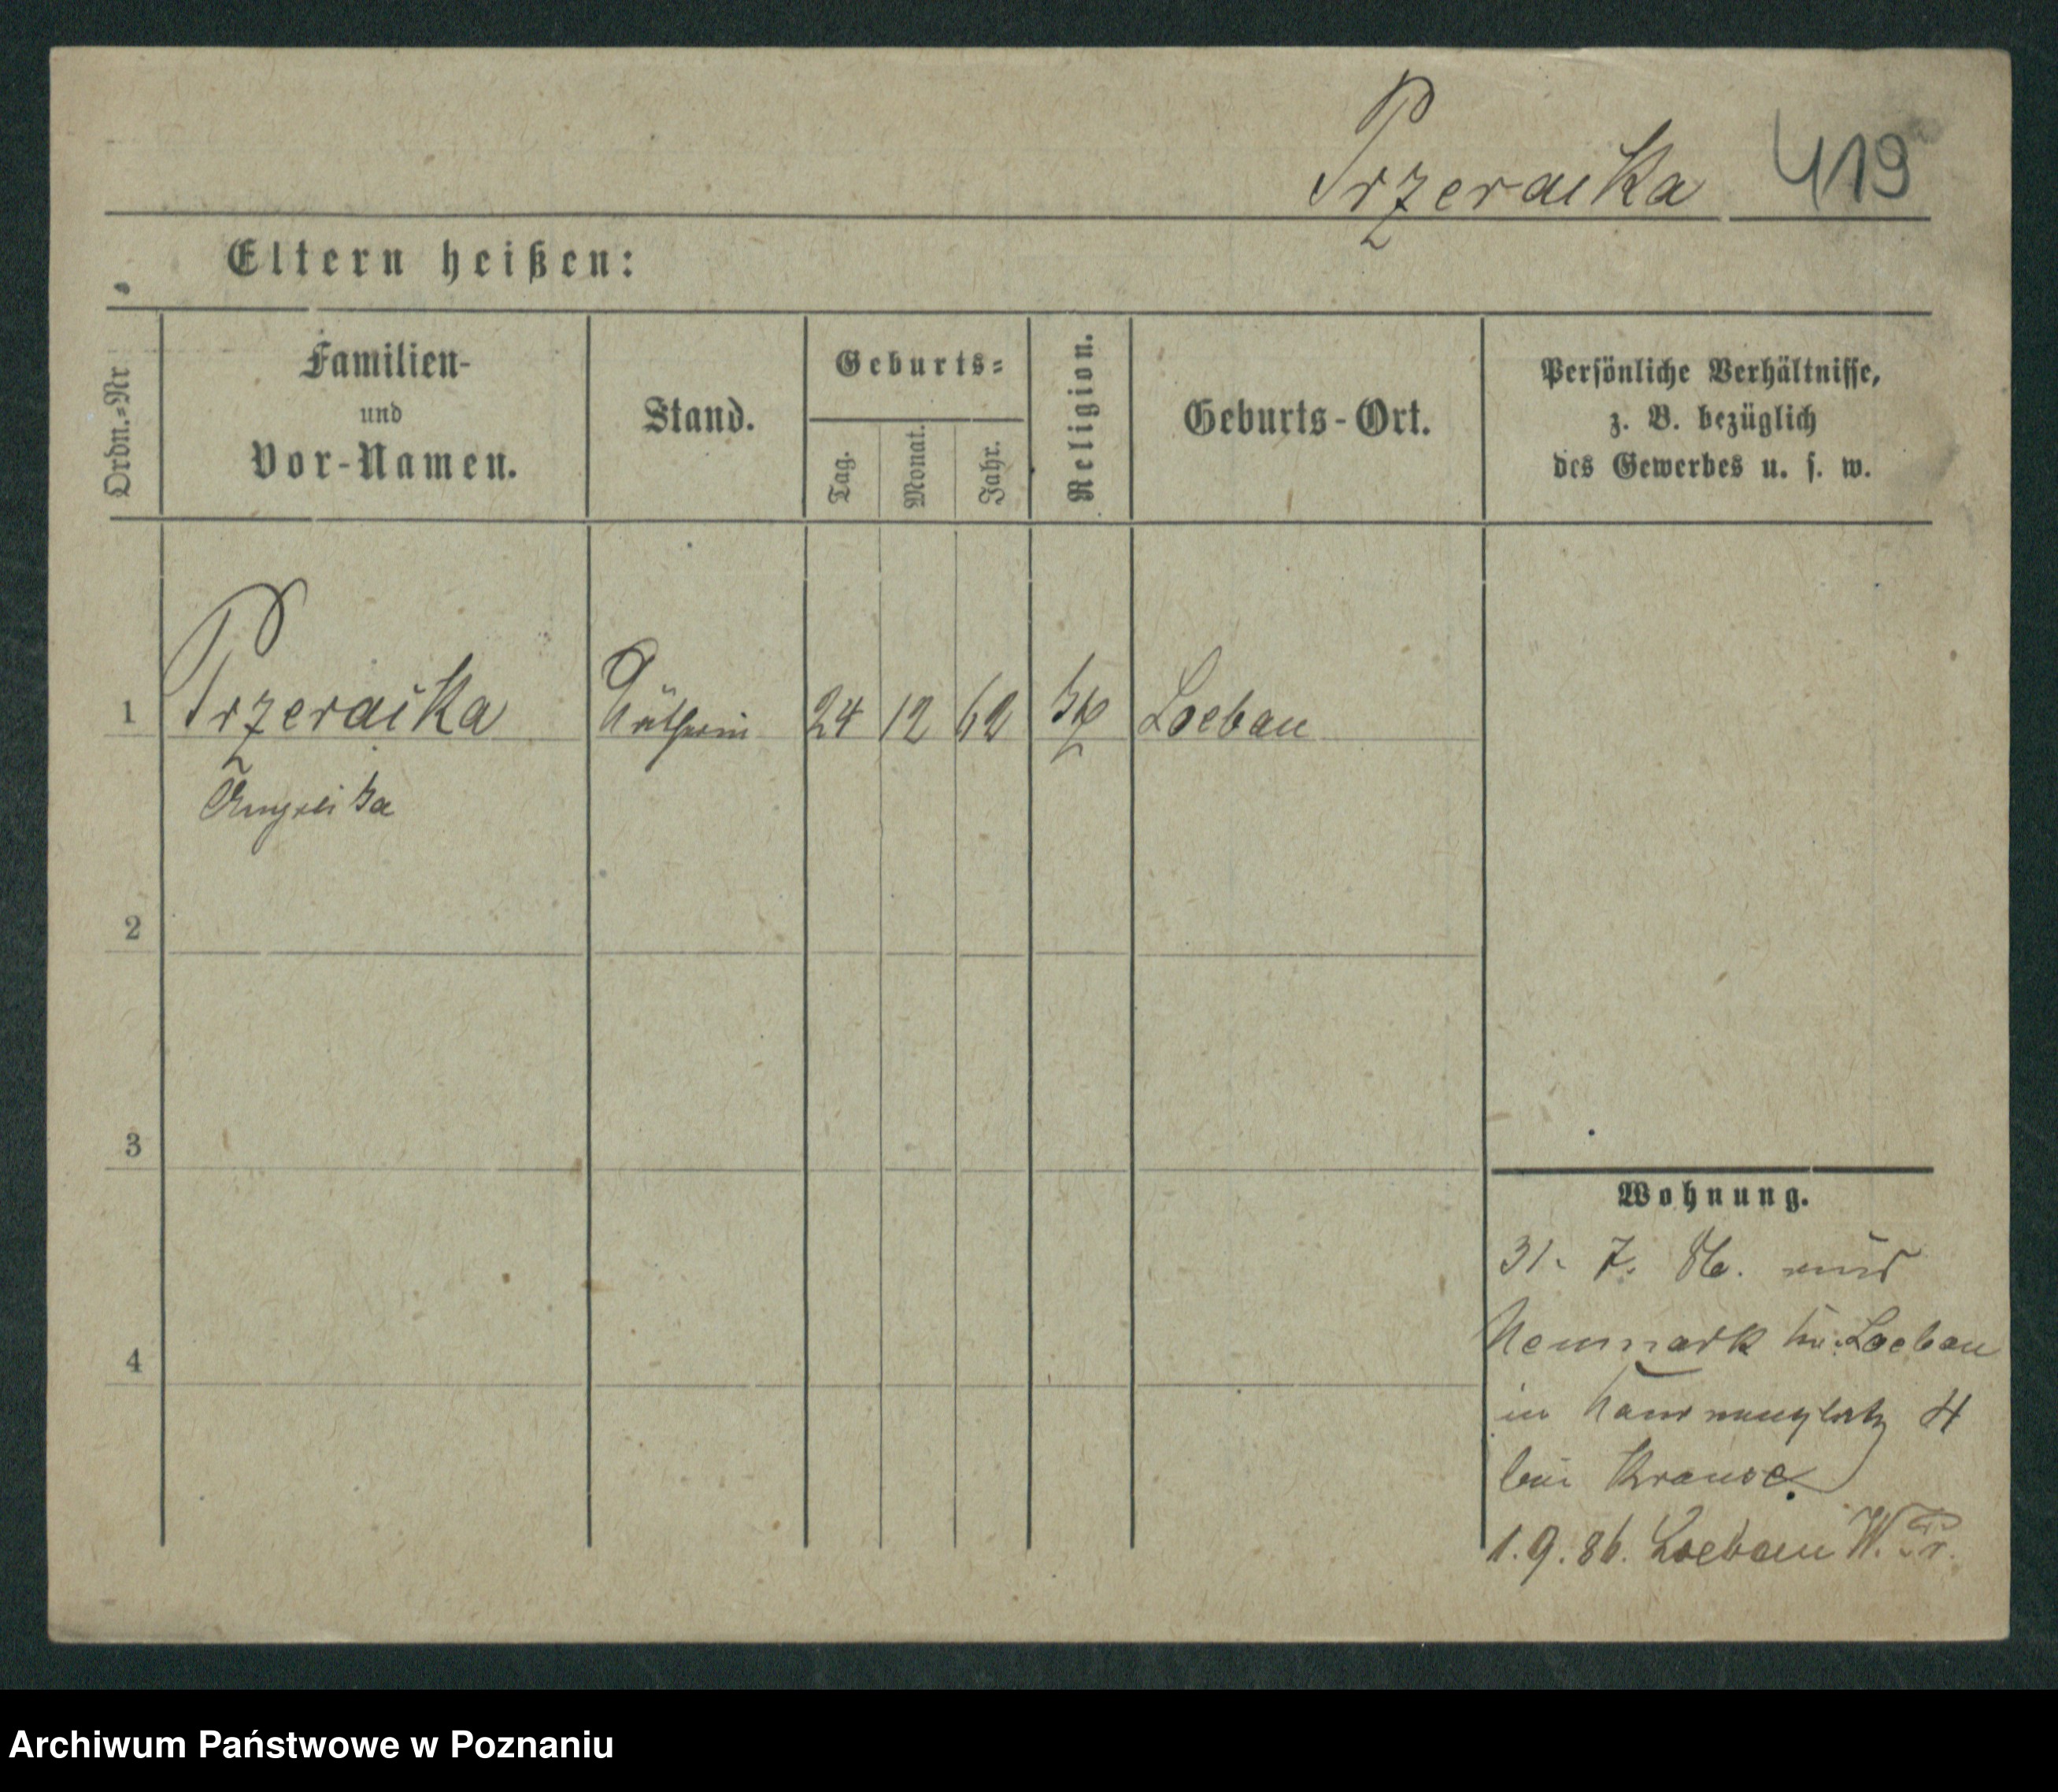 Przeraika 419
Eltern heißen:
Ordn.=Nr
Familien-
und
Vor-Namen.
Stand.
Geburts=
Tag.
Monat.
Jahr.
Religion.
Geburts-Ort.
Persönliche Verhältnisse,
z. B. bezüglich
des Gewerbes u. s. w.
1 Przeraika 24 12 62 Loebau
Angelika
2
3
4
Wohnung.
31. 7. 86.
Neumark Loebau
in 4
bei Krause.
1.9.86. Loebau W. Pr.
Archiwum Państwowe w Poznaniu